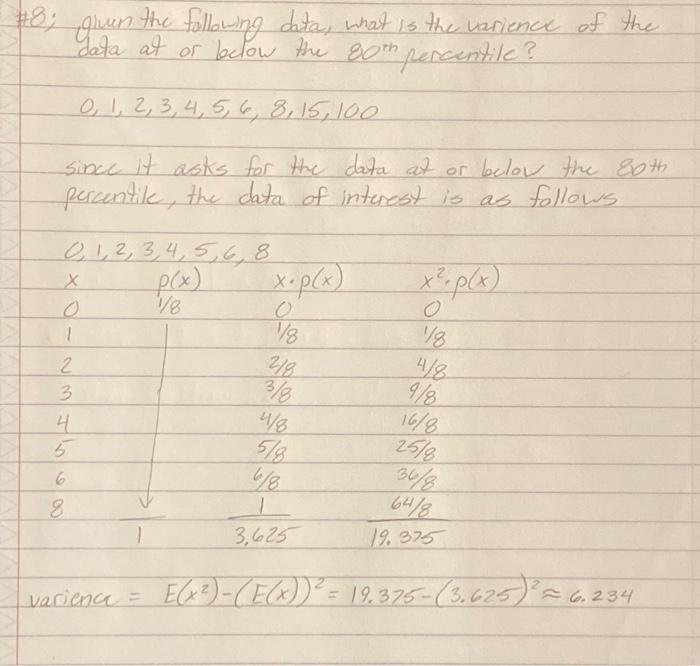 #8; given the following data, what is the varience of the
data at or below the 80th percentile?
0, 1, 2, 3, 4, 5, 6, 8, 15, 100
since it asks for the data at or below the 80th
percentile, the data of interest is as follows
0, 1, 2, 3, 4, 5, 6, 8
x p(x) x·p(x) x²·p(x)
0 1/8 0 0
1 1/8 1/8
2 2/8 4/8
3 3/8 9/8
4 4/8 16/8
5 5/8 25/8
6 6/8 36/8
8 1 64/8
1 3.625 19.375
varience = E(x²)-(E(x))² = 19.375-(3.625)² ≈ 6.234